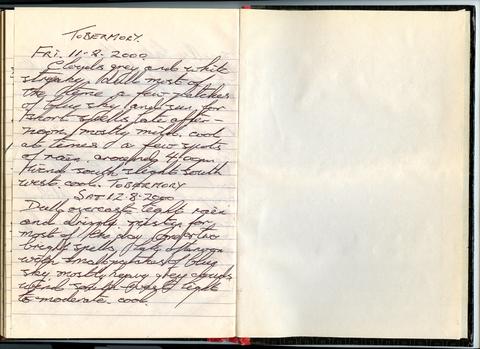 TOBERMORY.
FRI. 11-8-2000
Clouds grey and white
streaky. Dull most of
the time a few patches
of blue sky and sun, for
short spells late after-
noon, mostly mild. cool
at times & a few spots
of rain around 4.00pm
Wind south slight south
west. cool. TOBERMORY
SAT 12-8-2000
Dull, overcast light rain
and misty for
most of the day
bright spells, late afternoon
with small patches of blue
sky mostly heavy grey clouds
wind south light
to moderate. cool.